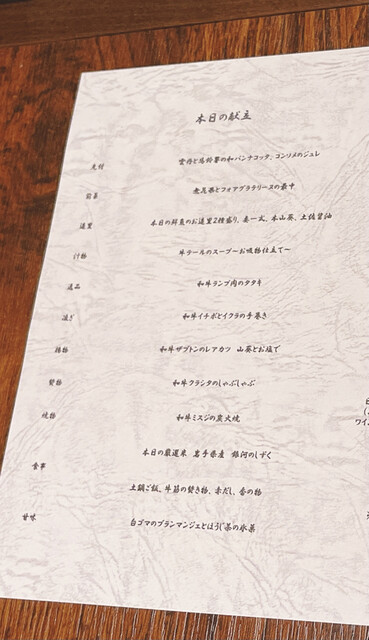 本日の献立
先付 雲丹と馬鈴薯の和パンナコッタ、コンソメのジュレ
前菜 無花果とフォアグラテリーヌの最中
造里 本日の鮮魚のお造里2種盛り、妻一式、本山葵、土佐醤油
汁物 牛テールのスープ〜お吸物仕立て〜
逸品 和牛ランプ肉のタタキ
凌ぎ 和牛イチボとイクラの手巻き
揚物 和牛ザブトンのレアカツ 山葵とお塩で
焚物 和牛クラシタのしゃぶしゃぶ
焼物 和牛ミスジの炭火焼
食事 本日の厳選米 岩手県産 銀河のしずく
土鍋ご飯、牛筋の焚き物、赤だし、香の物
甘味 白ゴマのブランマンジェとほうじ茶の氷菓
ワイ